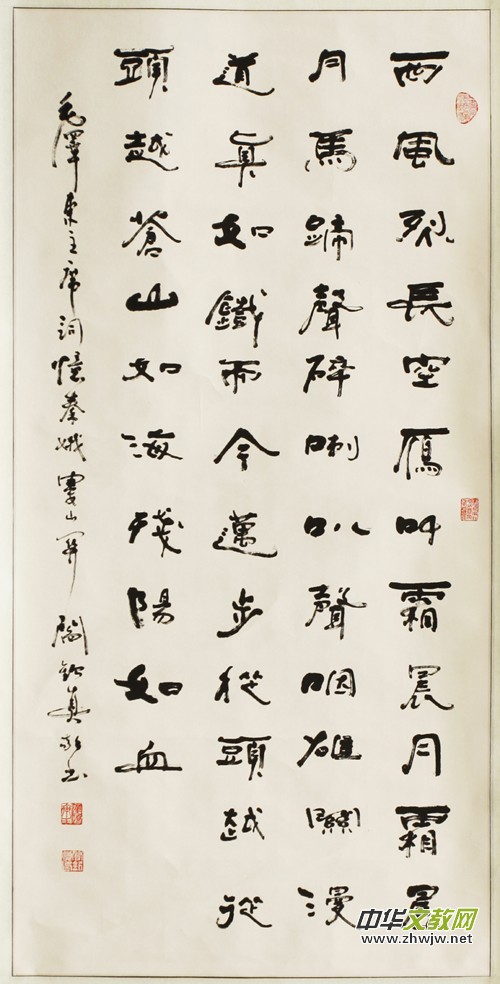 西風烈長空雁叫霜晨月霜晨
月馬蹄聲碎喇叭聲咽雄關漫
道真如鐵而今邁步從頭越從
頭越蒼山如海殘陽如血
毛澤東主席詞憶秦娥婁山関 真敬书
中华文教网
www.zhwjw.net